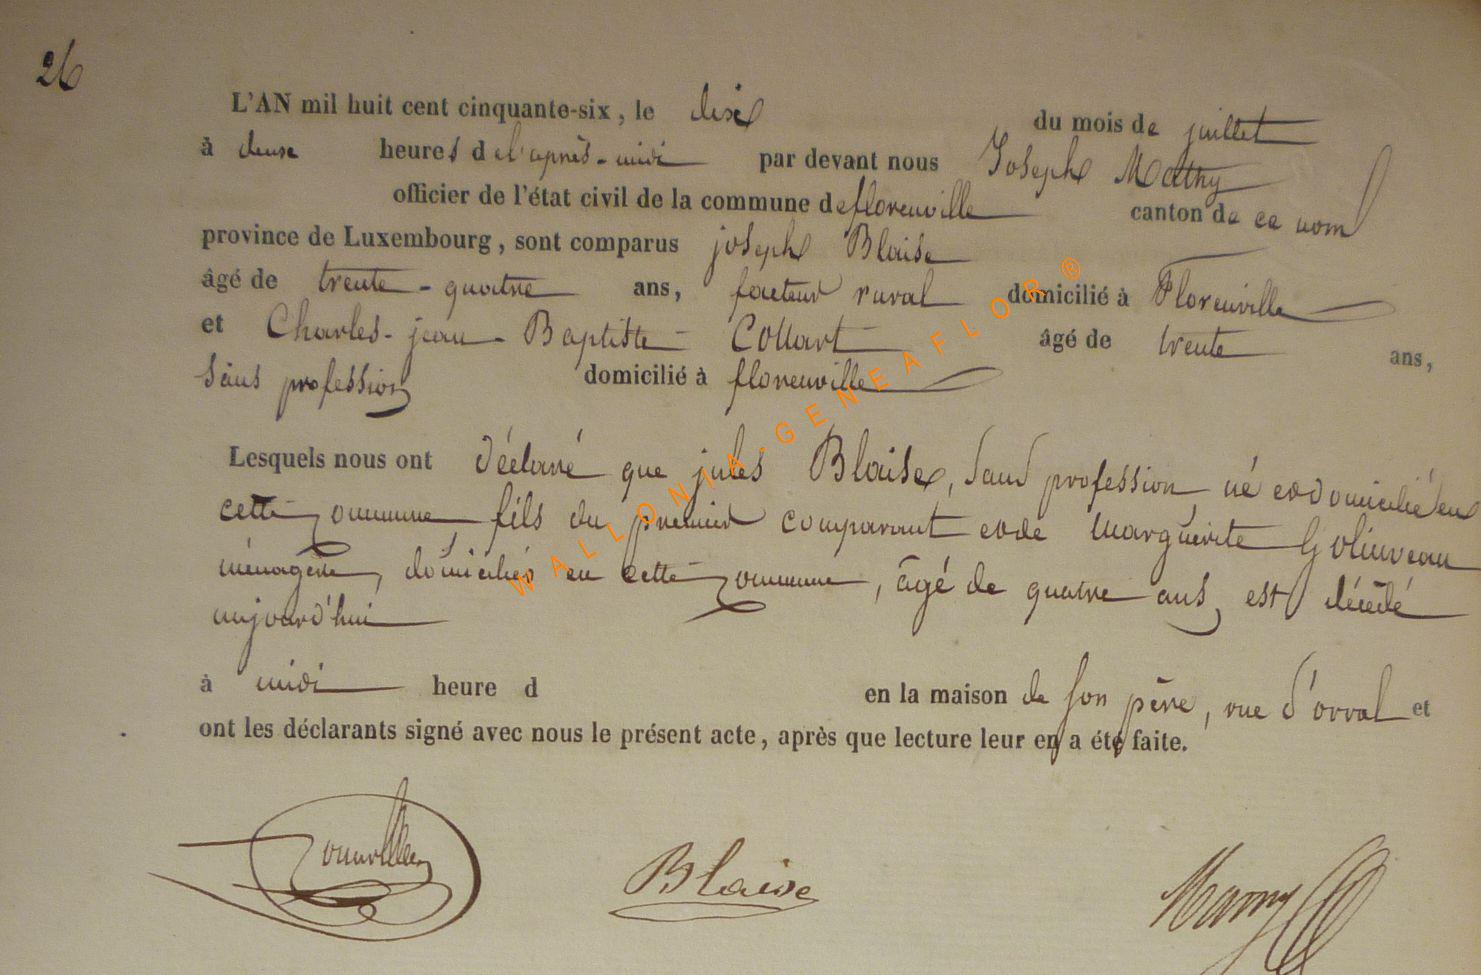 26
L'AN mil huit cent cinquante-six, le dix du mois de juillet
à deux heures de l'après-midi par devant nous Joseph Mathy
officier de l'état civil de la commune de florenville canton de ce nom
province de Luxembourg, sont comparus joseph Blaise
âgé de trente-quatre ans, facteur rural domicilié à Florenville
et Charles-jean-Baptiste Collart âgé de trente ans,
sans profession domicilié à florenville
Lesquels nous ont déclaré que jules Blaise, sans profession, né et domicilié en
cette commune, fils du premier comparant et de marguerite
ménagère, domiciliés en cette commune, âgé de quatre ans, est décédé
aujourd'hui
à midi heure d en la maison de son père, rue d'orval et
ont les déclarants signé avec nous le présent acte, après que lecture leur en a été faite.
Blaise
WALLONIA-GENEAFLOR®